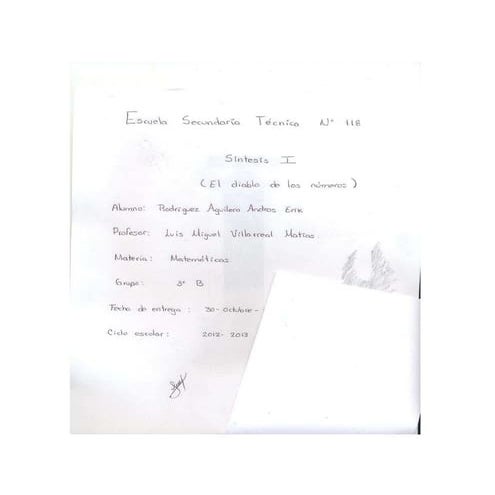 Escuela Secundaria Técnica N° 118
Síntesis I
(El diablo de los números)
Alumno: Rodríguez Aguilera Andros Erik
Profesor: Luis Miguel Villarreal Matías
Materia: Matemáticas
Grupo: 3° B
Fecha de entrega: 30-Octubre-
Ciclo escolar: 2012-2013